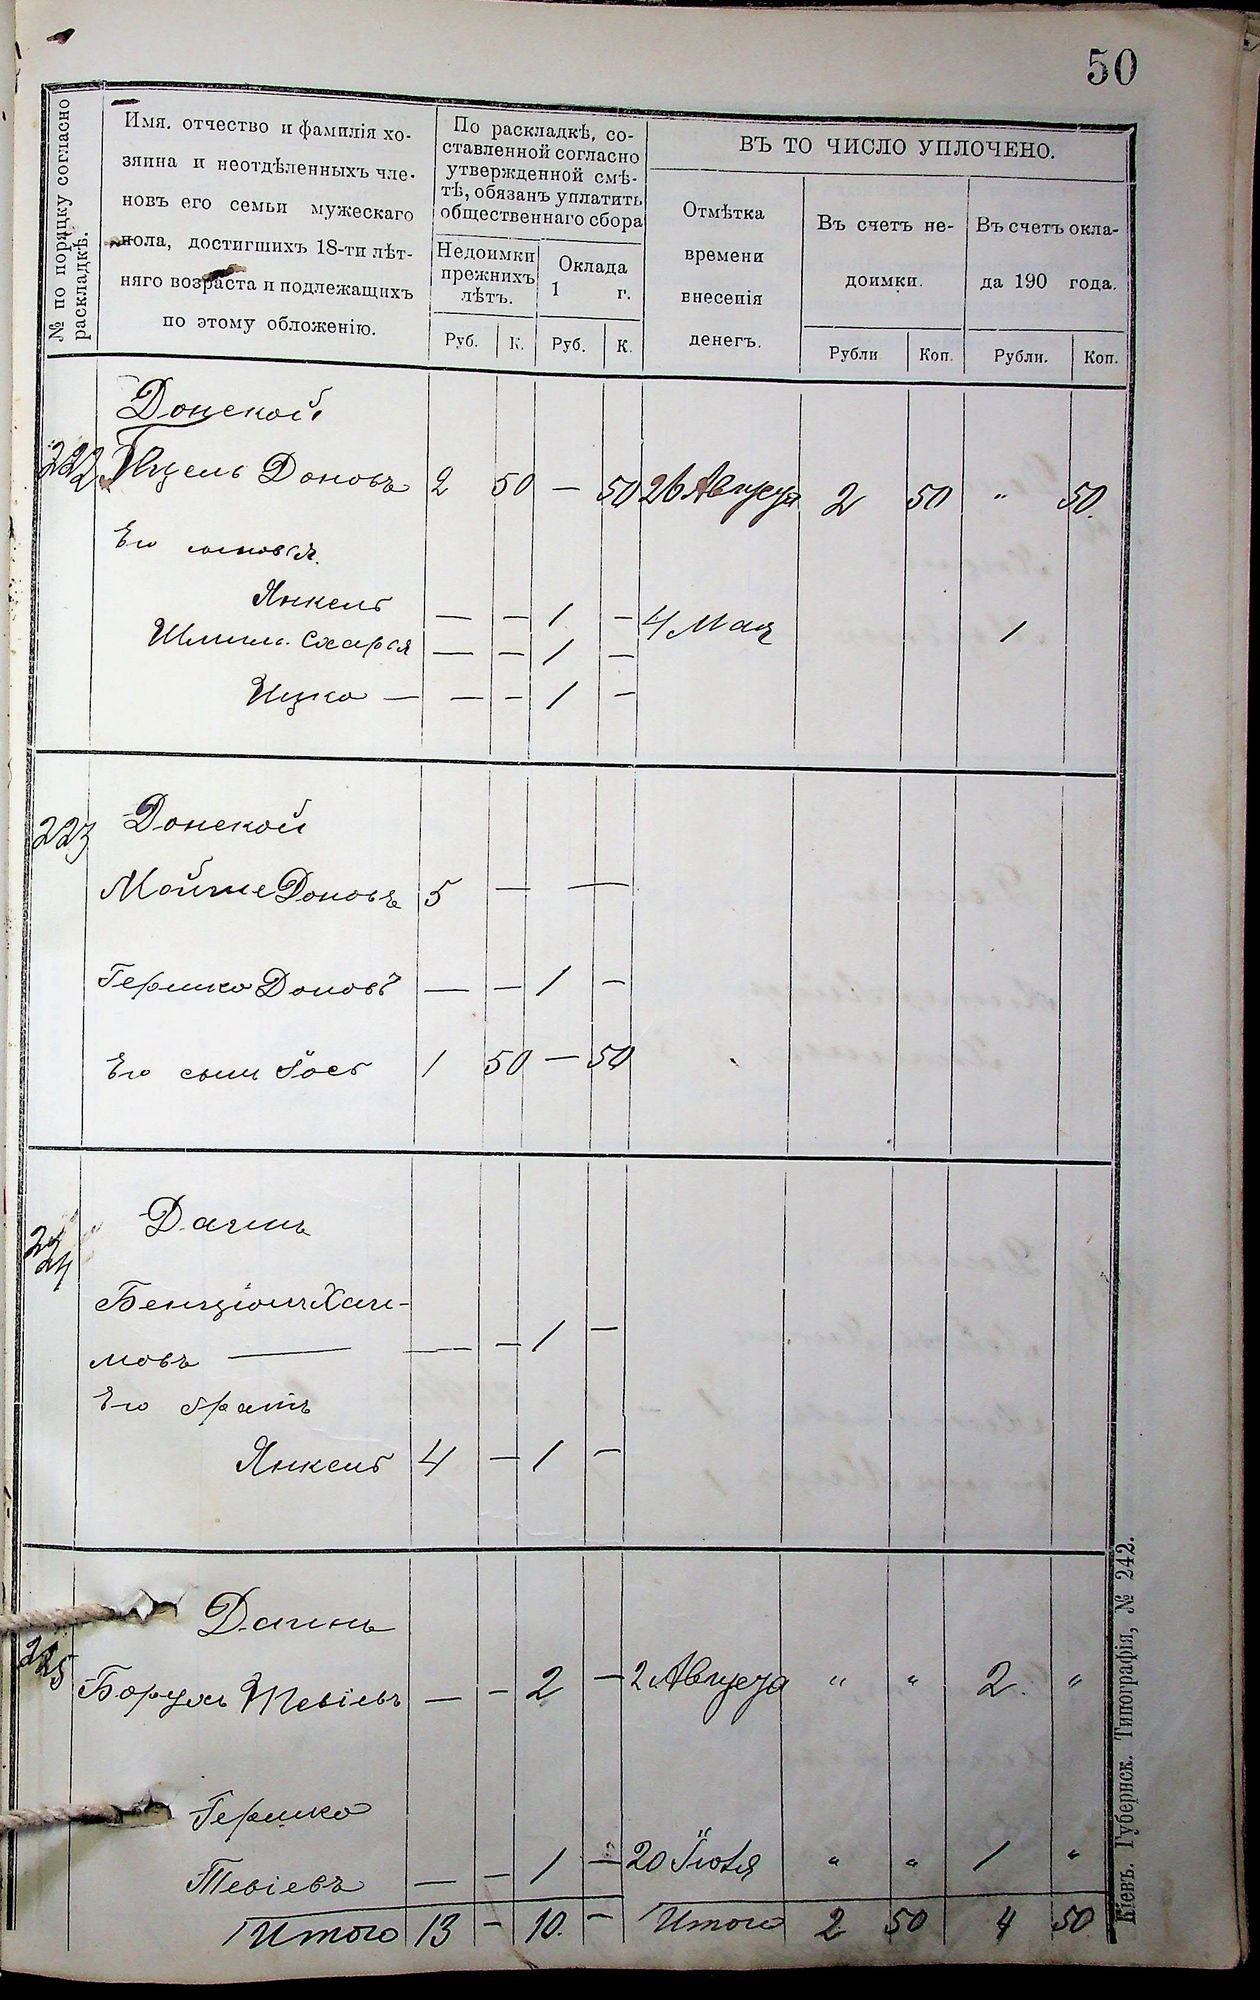 50
№ по порядку согласно раскладкѣ.
Имя, отчество и фамилія хо-
зяина и неотдѣленныхъ чле-
новъ его семьи мужескаго
пола, достигшихъ 18-ти лѣт-
няго возраста и подлежащихъ
по этому обложенію.
По раскладкѣ, со-
ставленной согласно
утвержденной смѣ-
тѣ, обязанъ уплатить
общественнаго сбора
Недоимки
прежнихъ
лѣтъ.
Оклада
1 г.
ВЪ ТО ЧИСЛО УПЛОЧЕНО.
Отмѣтка
времени
внесенія
денегъ.
Въ счетъ не-
доимки.
Въ счетъ окла-
да 190 года.
Руб. К. Руб. К. Рубли Коп. Рубли. Коп.
Донской
222 Ицель Доновъ 2 50 — 50 26 Августа 2 50 " 50.
Его сыновья
Янкель — — 1 — 4 Мая 1
Шмиль Сахарья — — 1 —
Ицко — — — 1 —
223 Донской
Мойше Доновъ 5 — —
Гершко Доновъ — — 1 —
Его сынъ Іось 1 50 — 50
224 Дагинъ
Бенціонъ Хаи-
мовъ — — — 1 —
Его братъ
Янкель 4 — 1 —
Дагинъ
225 Борухъ Тевіевъ — — 2 — 2 Августа " " 2. "
Гершко
Тевіевъ — — 1 — 20 Іюля " " 1 "
Итого 13 — 10. — Итого 2 50 4 50
Кіевъ. Губернск. Типографія, № 242.